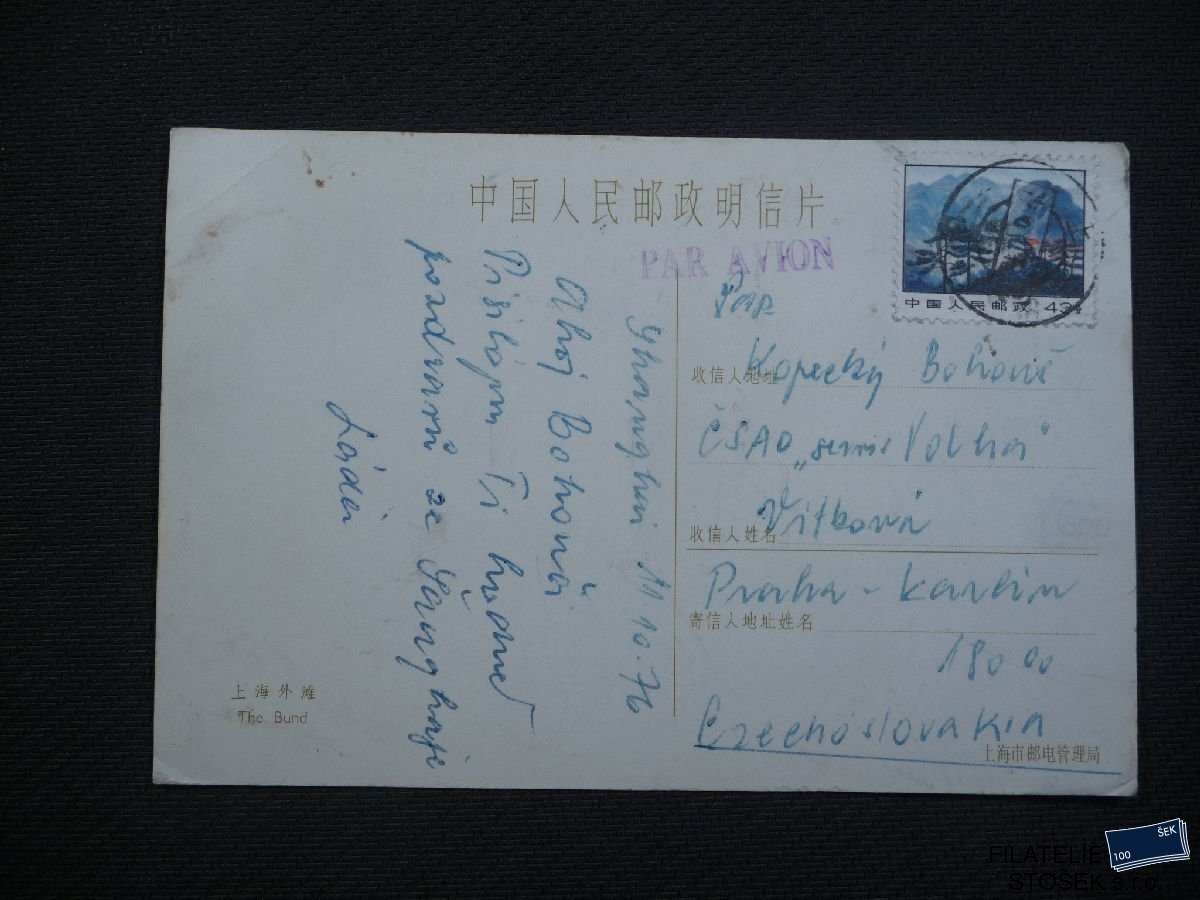 中国人民邮政明信片
PAR AVION
中国人民邮政 43
Shanghai 11.10.76
Ahoj Bohouši
Posílám Ti hodně
pozdravů ze Shanghaje
Láďa
Pan
收信人地址 Kopecký Bohouš
ČSAO „servis Volha"
收信人姓名 Vítkova
Praha - Karlín
寄信人地址姓名
180 00
Czechoslovakia
上海市邮电管理局
上海外滩
The Bund
ŠEK
100
FILATELIE
STOŠEK s.r.o.